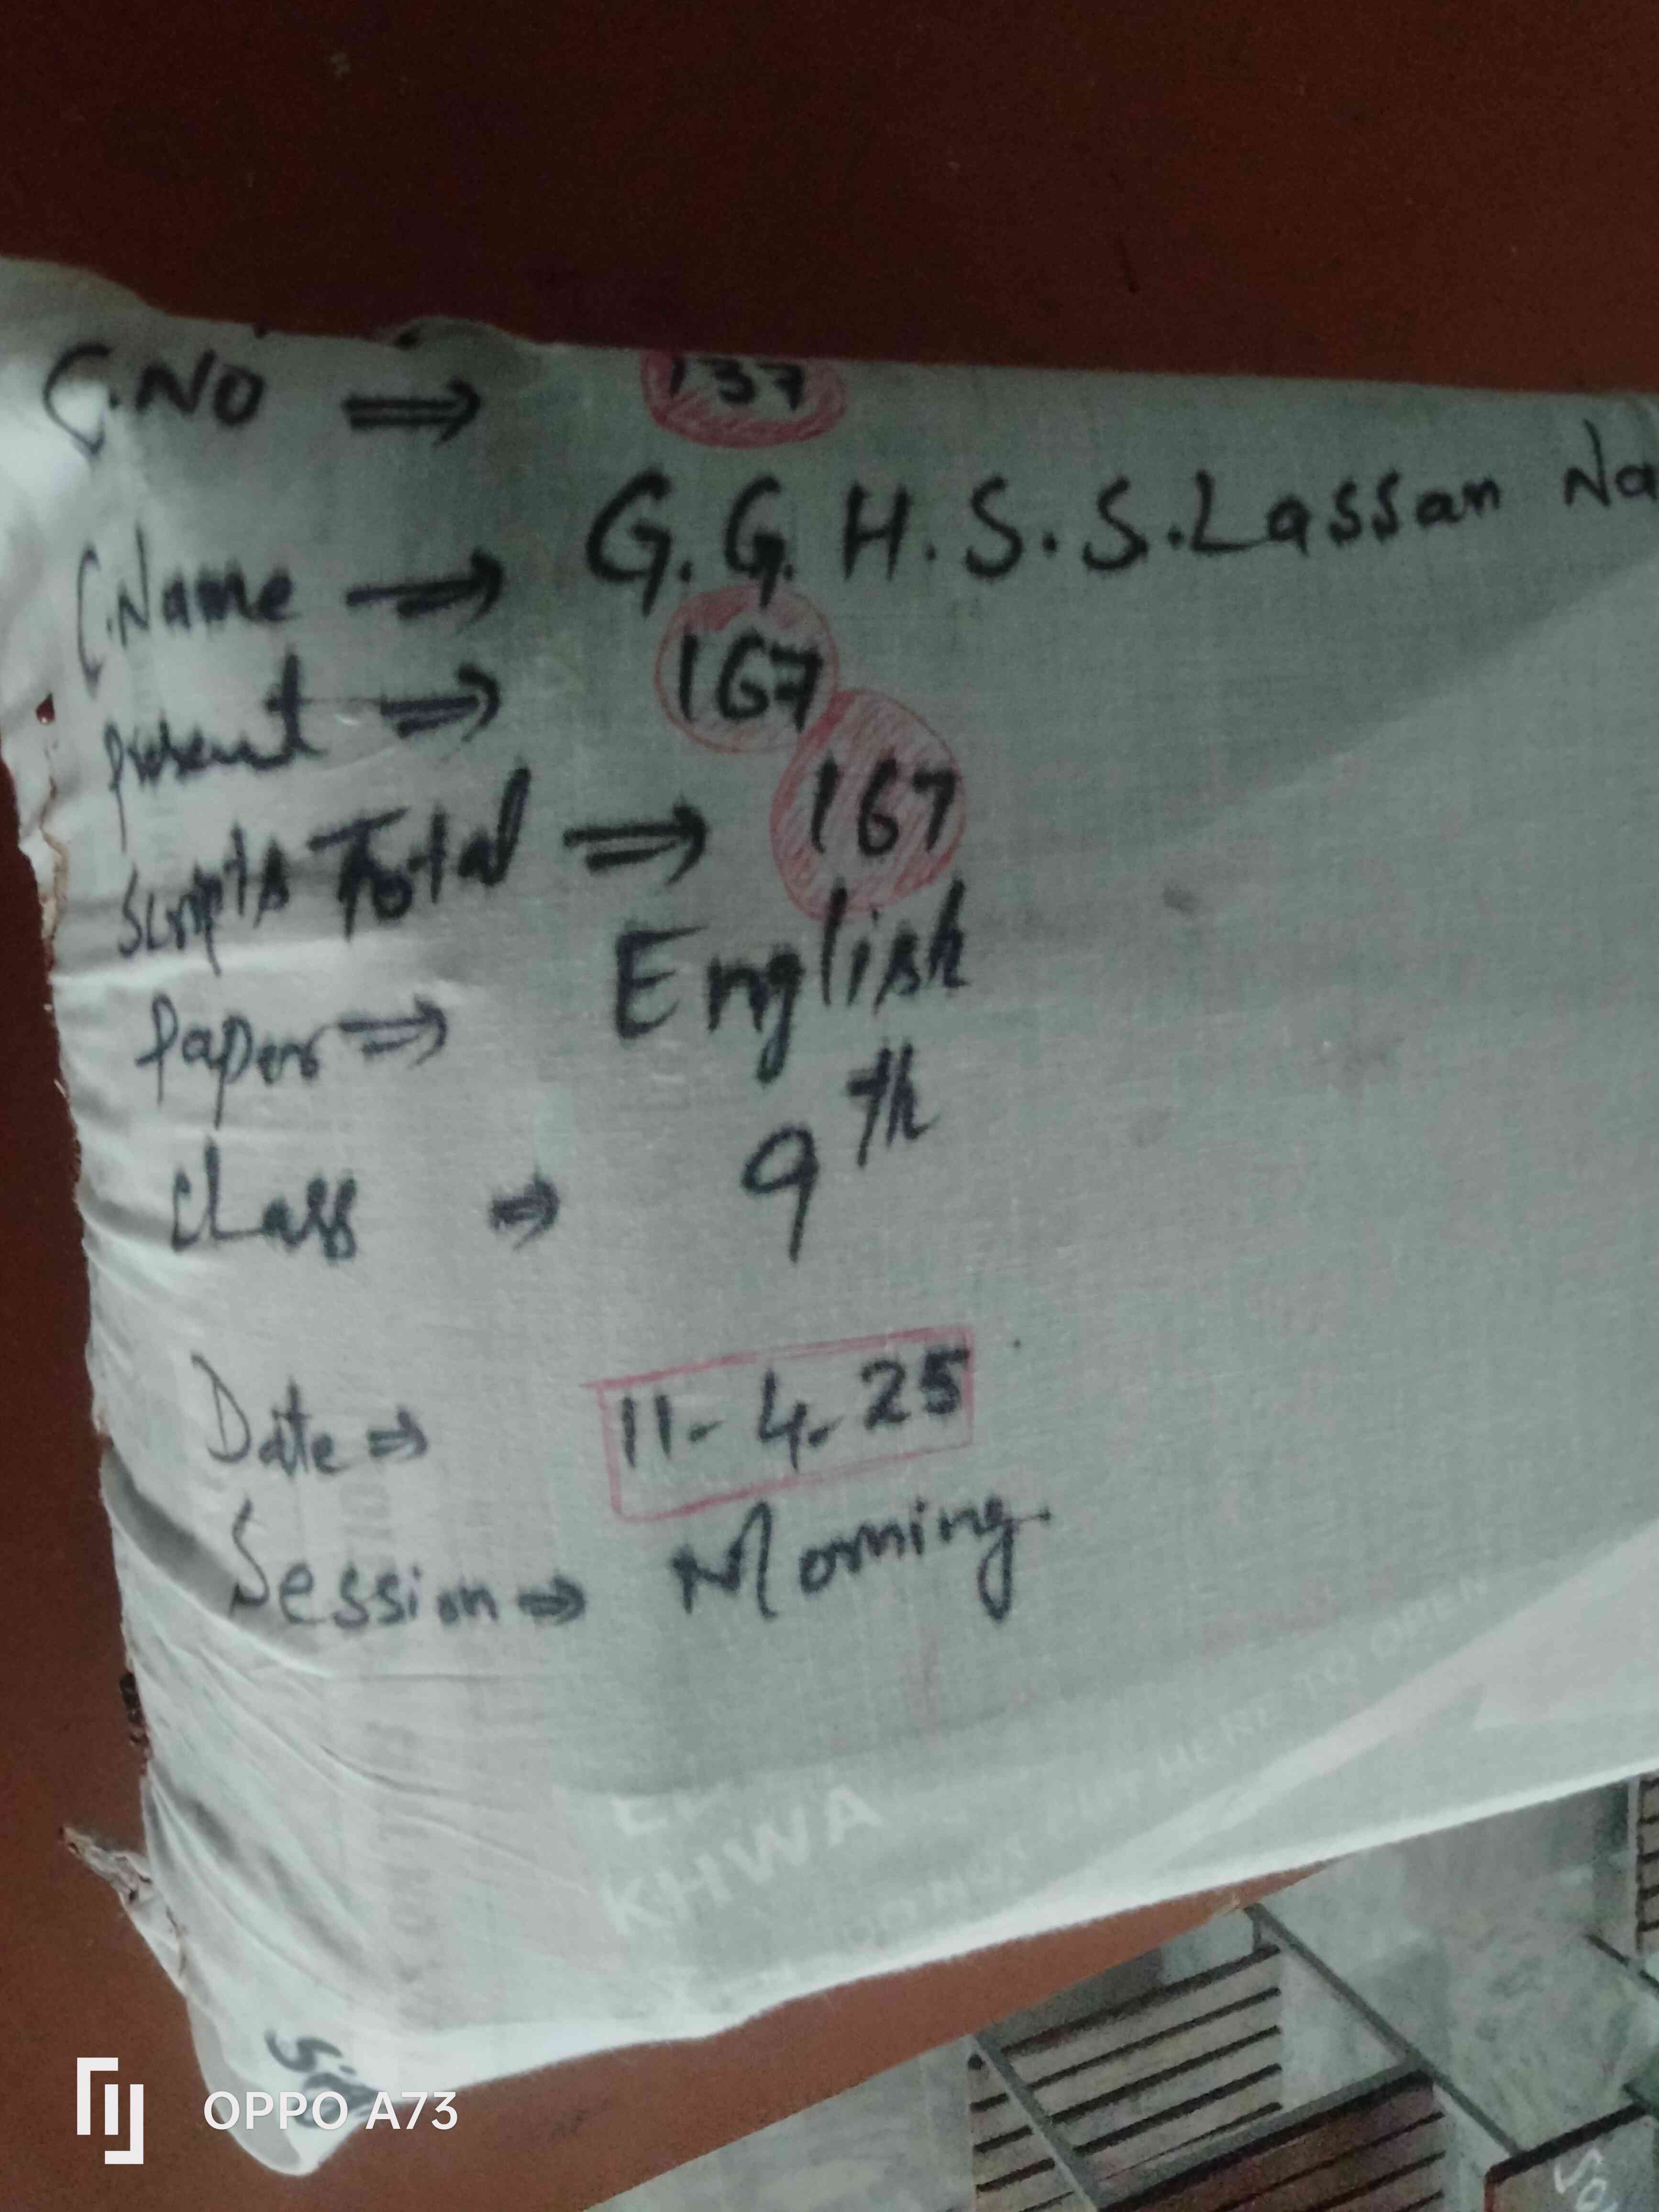 C.NO ⇒ 137
C.Name ⇒ G.G.H.S.S.Lassan Na
present ⇒ 167
Scripts Total ⇒ 167
Paper ⇒ English
Class ⇒ 9th
Date ⇒ 11-4-25
Session ⇒ Morning.
KHWA
HERE TO OPEN
OPPO A73